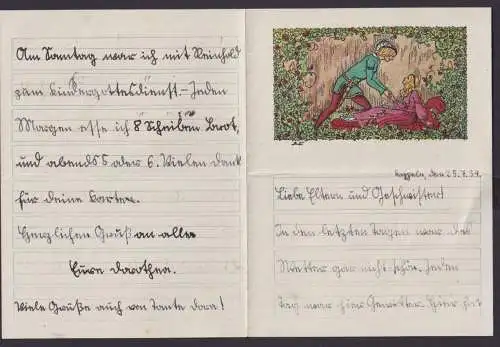 Kappeln, den
Liebe Eltern und Geschwister!
In den letzten Tagen war das
Wetter gar nicht schön. Jeden
Tag war hier Gewitter.
Am Sonntag war ich mit Reinhold
zum Kindergottesdienst.- Jeden
Morgen esse ich 8 Scheiben Brot,
und abends 5 oder 6. Vielen Dank
für deine Karten.
Herzlichen Gruß an alle
Eure Dorothea.
Viele Grüße auch von Tante Dora!